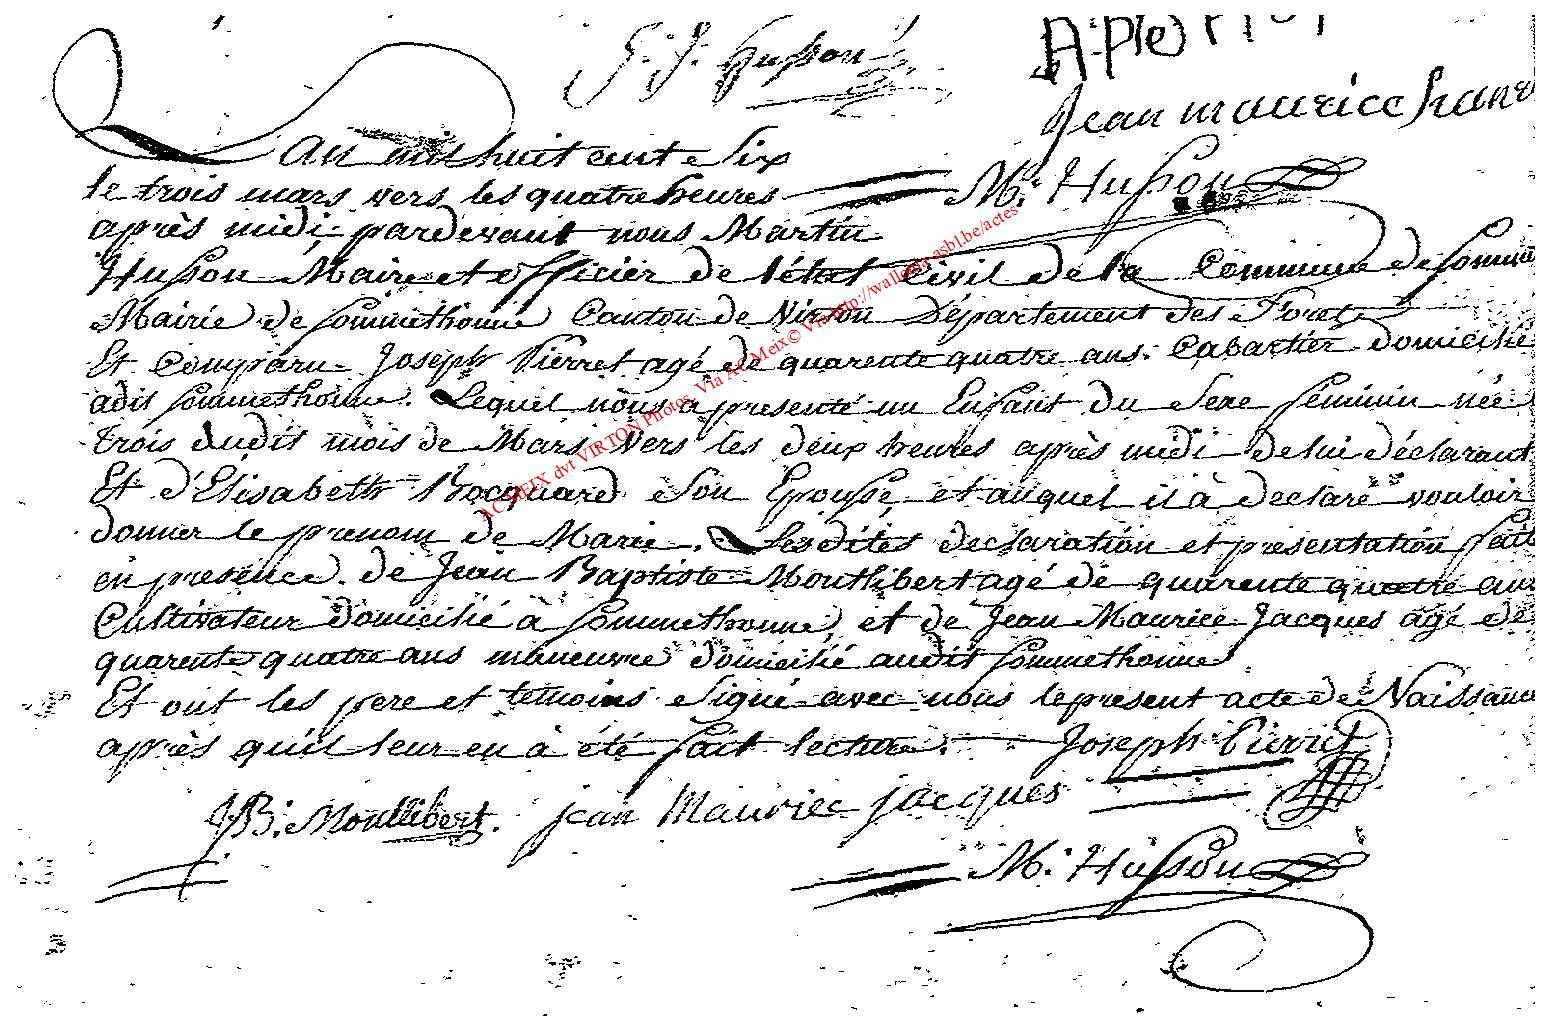 J. J. Husson
A. Pie
Jean maurice
L'an mil huit cent Six
le trois mars vers les quatre heures
M: Husson
après midi, pardevant nous Martin
Husson Maire et officier de létat Civil de la Commune de Somme
Mairie de Sommethonne Canton de Virton Département des Foret
Et Comparu Joseph Pierret agé de quarente quatre ans. Cabartier domicilié
adit Sommethonne. Lequel nous a presenté un Enfant du Sexe féminin née
trois dudit mois de Mars vers les deux heures après midi de lui déclarant
Et d'Elisabeth Bocquard Son Epousse, et auquel il à declaré vouloir
donner le prenom de Marie. Les dites declaration et présentation fait
en presence de Jean Baptiste Montlibert agé de quarente quatre ans
Cultivateur domicilié à Sommethonne, et de Jean Maurice Jacques agé de
quarente quatre ans maneuvre domicilié audit Sommethonne
Et ont les pere et temoins Signé avec nous le present acte de Naissance
après qu'il leur en à été fait lecture. Joseph Pierret
JB: Montlibert. jean Mauriec jacques
M: Husson
AC MEIX dvt VIRTON Photos, Via AC Meix© Via http://wallonia-asbl.be/actes